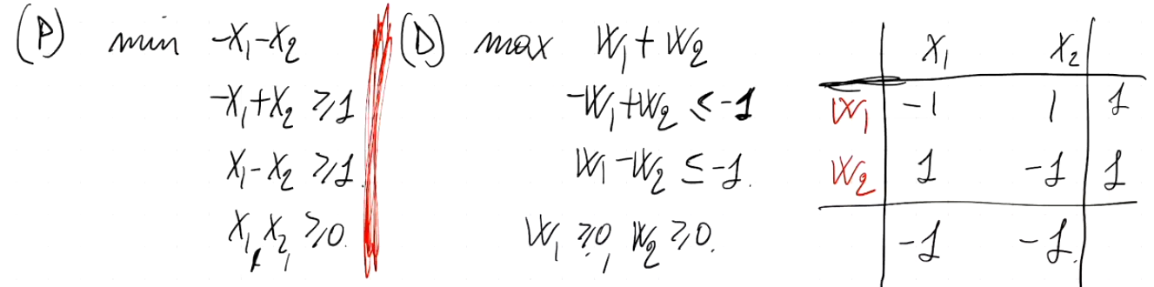 (P) min -X₁-X₂
-X₁+X₂ ≥1
X₁-X₂ ≥1.
X₁, X₂ ≥0.
(D) max W₁+W₂
-W₁+W₂ ≤-1
W₁-W₂ ≤-1.
W₁ ≥0, W₂ ≥0.
X₁ X₂
W₁ -1 1 1
W₂ 1 -1 1
-1 -1.